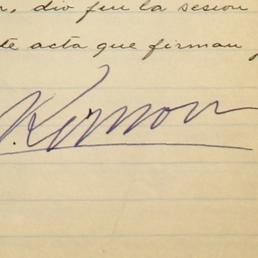 n, dio fin la sesion
te acta que firman,